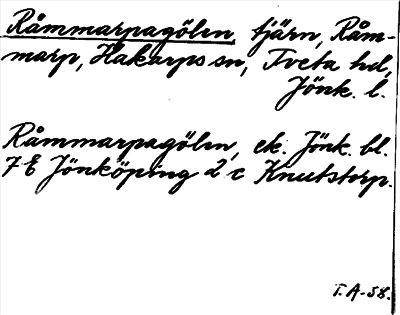 Råmmarpagölen, tjärn, Råm-
marp, Hakarps sn, Tveta hd,
Jönk. l.
Råmmarpagölen, ek. Jönk. bl.
7 E Jönköping 2 c Knutstorp.
T. A-58.